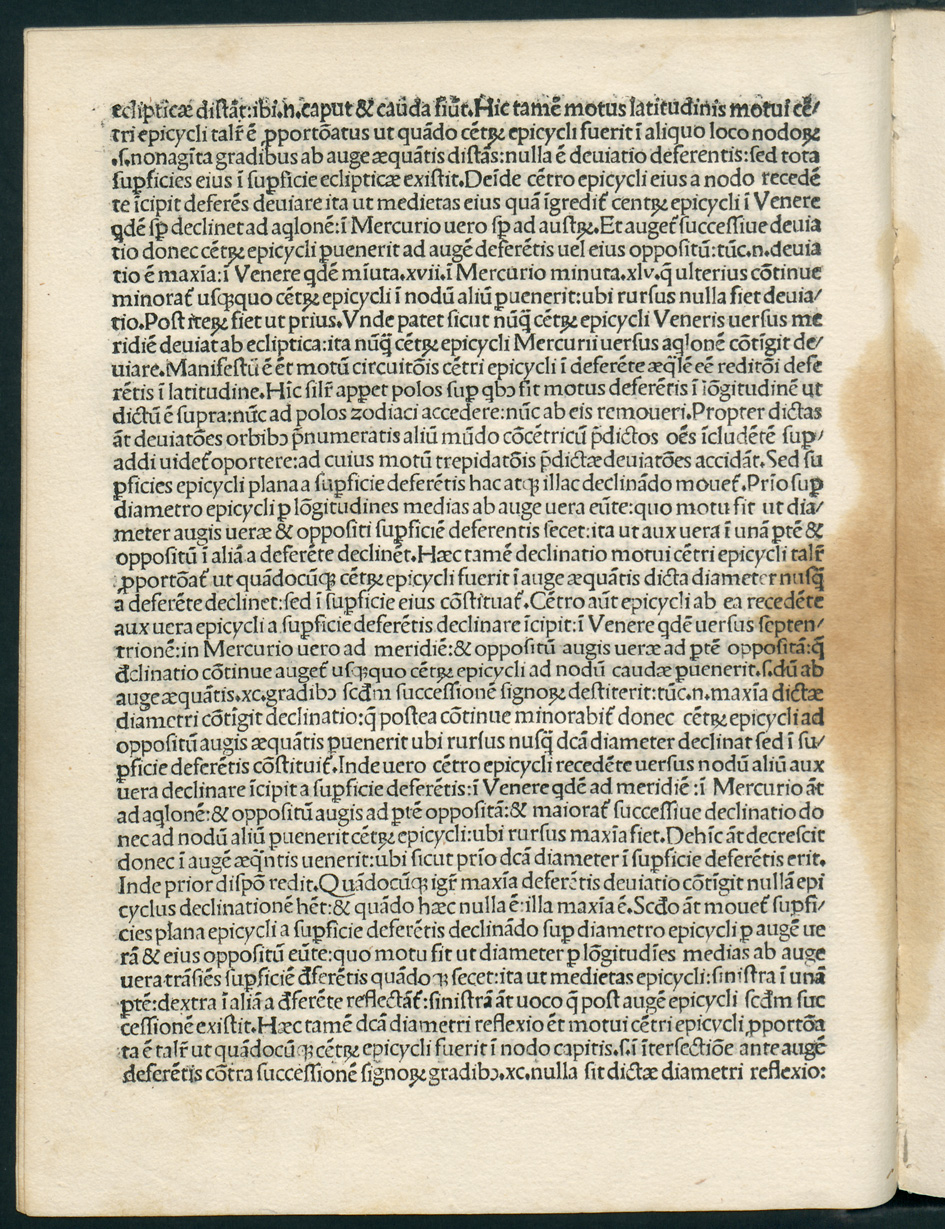 eclipticæ distāt:ibi.n.caput & cauda fiūt.Hic tamē motus latitudinis motui cē/
tri epicycli talr̄ ē ꝓportōatus ut quādo cētꝝ epicycli fuerit ī aliquo loco nodoꝝ
.s.nonagīta gradibus ab auge æquātis distās:nulla ē deuiatio deferentis:sed tota
suꝑficies eius ī suꝑficie eclipticæ existit.Deīde cētro epicycli eius a nodo recedē
te īcipit deferēs deuiare ita ut medietas eius quā īgredit᷑ centꝝ epicycli ī Venere
qdē sꝑ declinet ad aqlonē:ī Mercurio uero sꝑ ad austꝝ.Et auget᷑ successiue deuia
tio donec cētꝝ epicycli ꝑuenerit ad augē deferētis uel eius oppositū:tūc.n.deuia
tio ē maxīa:ī Venere qdē mīuta.xvii.ī Mercurio minuta.xlv.q̄ ulterius cōtinue
minorat᷑ usqꝫquo cētꝝ epicycli ī nodū aliū ꝑuenerit:ubi rursus nulla fiet deuia/
tio.Post iteꝝ fiet ut prius.Vnde patet sicut nūq̄ cētꝝ epicycli Veneris uersus me
ridiē deuiat ab ecliptica:ita nūq̄ cētꝝ epicycli Mercurii uersus aqlonē cōtīgit de/
uiare.Manifestū ē ēt motū circuitōis cētri epicycli ī deferēte æq̄lē eē reditōi defe
rētis ī latitudine.Hīc silr̄ appet polos suꝑ qbꝯ fit motus deferētis ī lōgitudinē ut
dictū ē supra:nūc ad polos zodiaci accedere:nūc ab eis remoueri.Propter dictas
āt deuiatōes orbibꝯ p̄numeratis aliū mūdo cōcētricū p̄dictos oēs īcludētē suꝑ/
addi uidet᷑ oportere:ad cuius motū trepidatōis p̄dictæ deuiatōes accidāt.Sed su
ꝑficies epicycli plana a suꝑficie deferētis hac atqꝫ illac declinādo mouet᷑.Prīo suꝑ
diametro epicycli ꝑ lōgitudines medias ab auge uera eūte:quo motu fit ut dia/
meter augis ueræ & oppositi suꝑficiē deferentis secet:ita ut aux uera ī unā ꝑtē &
oppositū ī aliā a deferēte declinēt.Hæc tamē declinatio motui cētri epicycli talr̄
ꝓportōat᷑ ut quādocūqꝫ cētꝝ epicycli fuerit ī auge æquātis dicta diameter nusq̄
a deferēte declinet:sed ī suꝑficie eius cōstituat᷑.Cētro aūt epicycli ab ea recedēte
aux uera epicycli a suꝑficie deferētis declinare īcipit:ī Venere qdē uersus septen/
trionē:in Mercurio uero ad meridiē:& oppositū augis ueræ ad ptē oppositā:q̄
đclinatio cōtinue auget᷑ usqꝫquo cētꝝ epicycli ad nodū caudæ ꝑuenerit.s.dū ab
auge æquātis.xc.gradibꝯ scđm successionē signoꝝ destiterit:tūc.n.maxīa dictæ
diametri cōtīgit declinatio:q̄ postea cōtinue minorabit᷑ donec cētꝝ epicycli ad
oppositū augis æquātis ꝑuenerit ubi rursus nusq̄ dcā diameter declinat sed ī su/
ꝑficie deferētis cōstituit᷑.Inde uero cētro epicycli recedēte uersus nodū aliū aux
uera declinare īcipit a suꝑficie deferētis:ī Venere qdē ad meridiē :ī Mercurio āt
ad aqlonē:& oppositū augis ad ptē oppositā:& maiorat᷑ successiue declinatio do
nec ad nodū aliū ꝑuenerit cētꝝ epicycli:ubi rursus maxīa fiet.Dehīc āt decrescit
donec ī augē æq̄ntis uenerit:ubi sicut prīo dcā diameter ī suꝑficie deferētis erit.
Inde prior dispō redit.Quādocūqꝫ igr̄ maxīa deferētis deuiatio cōtīgit nullā epi
cyclus declinationē hēt:& quādo hæc nulla ē:illa maxīa ē.Scđo āt mouet᷑ suꝑfi/
cies plana epicycli a suꝑficie deferētis declinādo suꝑ diametro epicycli ꝑ augē ue
rā & eius oppositū eūte:quo motu fit ut diameter ꝑ lōgitudīes medias ab auge
uera trāsiēs suꝑficiē đferētis quādoqꝫ secet:ita ut medietas epicycli:sinistra ī unā
ꝑtē:dextra ī aliā a đferēte reflectāt᷑:sinistrā āt uoco q̄ post augē epicycli scđm suc
cessionē existit.Hæc tamē dcā diametri reflexio ēt motui cētri epicycli ꝓportōa
ta ē talr̄ ut quādocūqꝫ cētꝝ epicycli fuerit ī nodo capitis.s.ī ītersectiōe ante augē
deferētis cōtra successionē signoꝝ gradibꝯ.xc.nulla sit dictæ diametri reflexio: